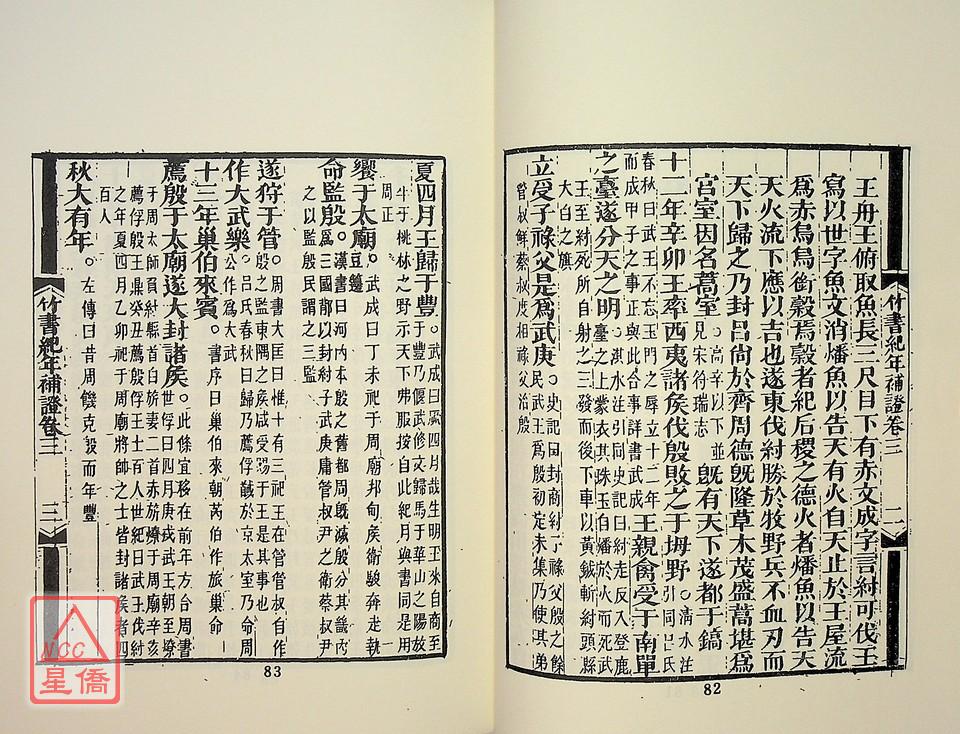 王舟王俯取魚長三尺目下有赤文成字言紂可伐王
寫以世字魚文消燔魚以告天有火自天止於王屋流
為赤烏烏銜穀焉穀者紀后稷之德火者燔魚以告天
天火流下應以吉也遂東伐紂勝於牧野兵不血刃而
天下歸之乃封呂尚於齊周德旣隆草木茂盛蒿堪爲
宮室因名蒿室高辛以下並見宋符瑞志旣有天下遂都于鎬
十二年辛卯王率西夷諸矦伐殷敗之于坶野。淸水注引同呂氏
春秋曰武王不忘玉門之辱立十二年而成甲子之事正與此合事詳書武成王親禽受于南單
之臺遂分天之明。淇水注引同史記曰紂走反入登鹿臺之上蒙衣其珠玉自燔於火而死武
王至紂死所自射之三發而後下車以黃鉞斬紂頭縣大白之旗
立受子祿父是爲武庚。史記曰封商紂子祿父殷之餘民武王爲殷初定未集乃使其弟
管叔鮮蔡叔度相祿父治殷
竹書紀年補證卷三
二
82
夏四月王歸于豐。武成曰厥四月哉生明王來自商至于豐乃偃武修文歸馬于華山之陽放
牛于桃林之野示天下弗服按自此紀月與書同是用周正
饗于太廟。武成曰丁未祀于周廟邦甸矦衛駿奔走執豆籩
命監殷。漢書曰河內本殷之舊都周旣滅殷分其畿內爲三國鄁以封紂子武庚庸管叔尹之衛蔡叔尹
之以監殷民謂之三監
遂狩于管。周書大匡曰惟十有三祀王在管管叔自作殷之監東隅之矦咸受賜于王是其事也
作大武樂。呂氏春秋曰歸乃薦俘馘於京太室乃命周公作爲大武
十三年巢伯來賓。書序曰巢伯來朝芮伯作旅巢命
薦殷于太廟遂大封諸矦。此條宜移在前年方合周書世俘曰四月庚戌武王朝至燎
于周太師負紂縣首白旂妻二首赤旂燎于周廟辛亥薦俘殷王鼎癸丑薦殷俘王士百人世紀曰武王伐紂
之年夏四月乙卯祀于周廟將帥之士皆封諸矦者四百人
秋大有年。左傳曰昔周饑克殷而年豐
竹書紀年補證卷三
三
83
NCC
星僑